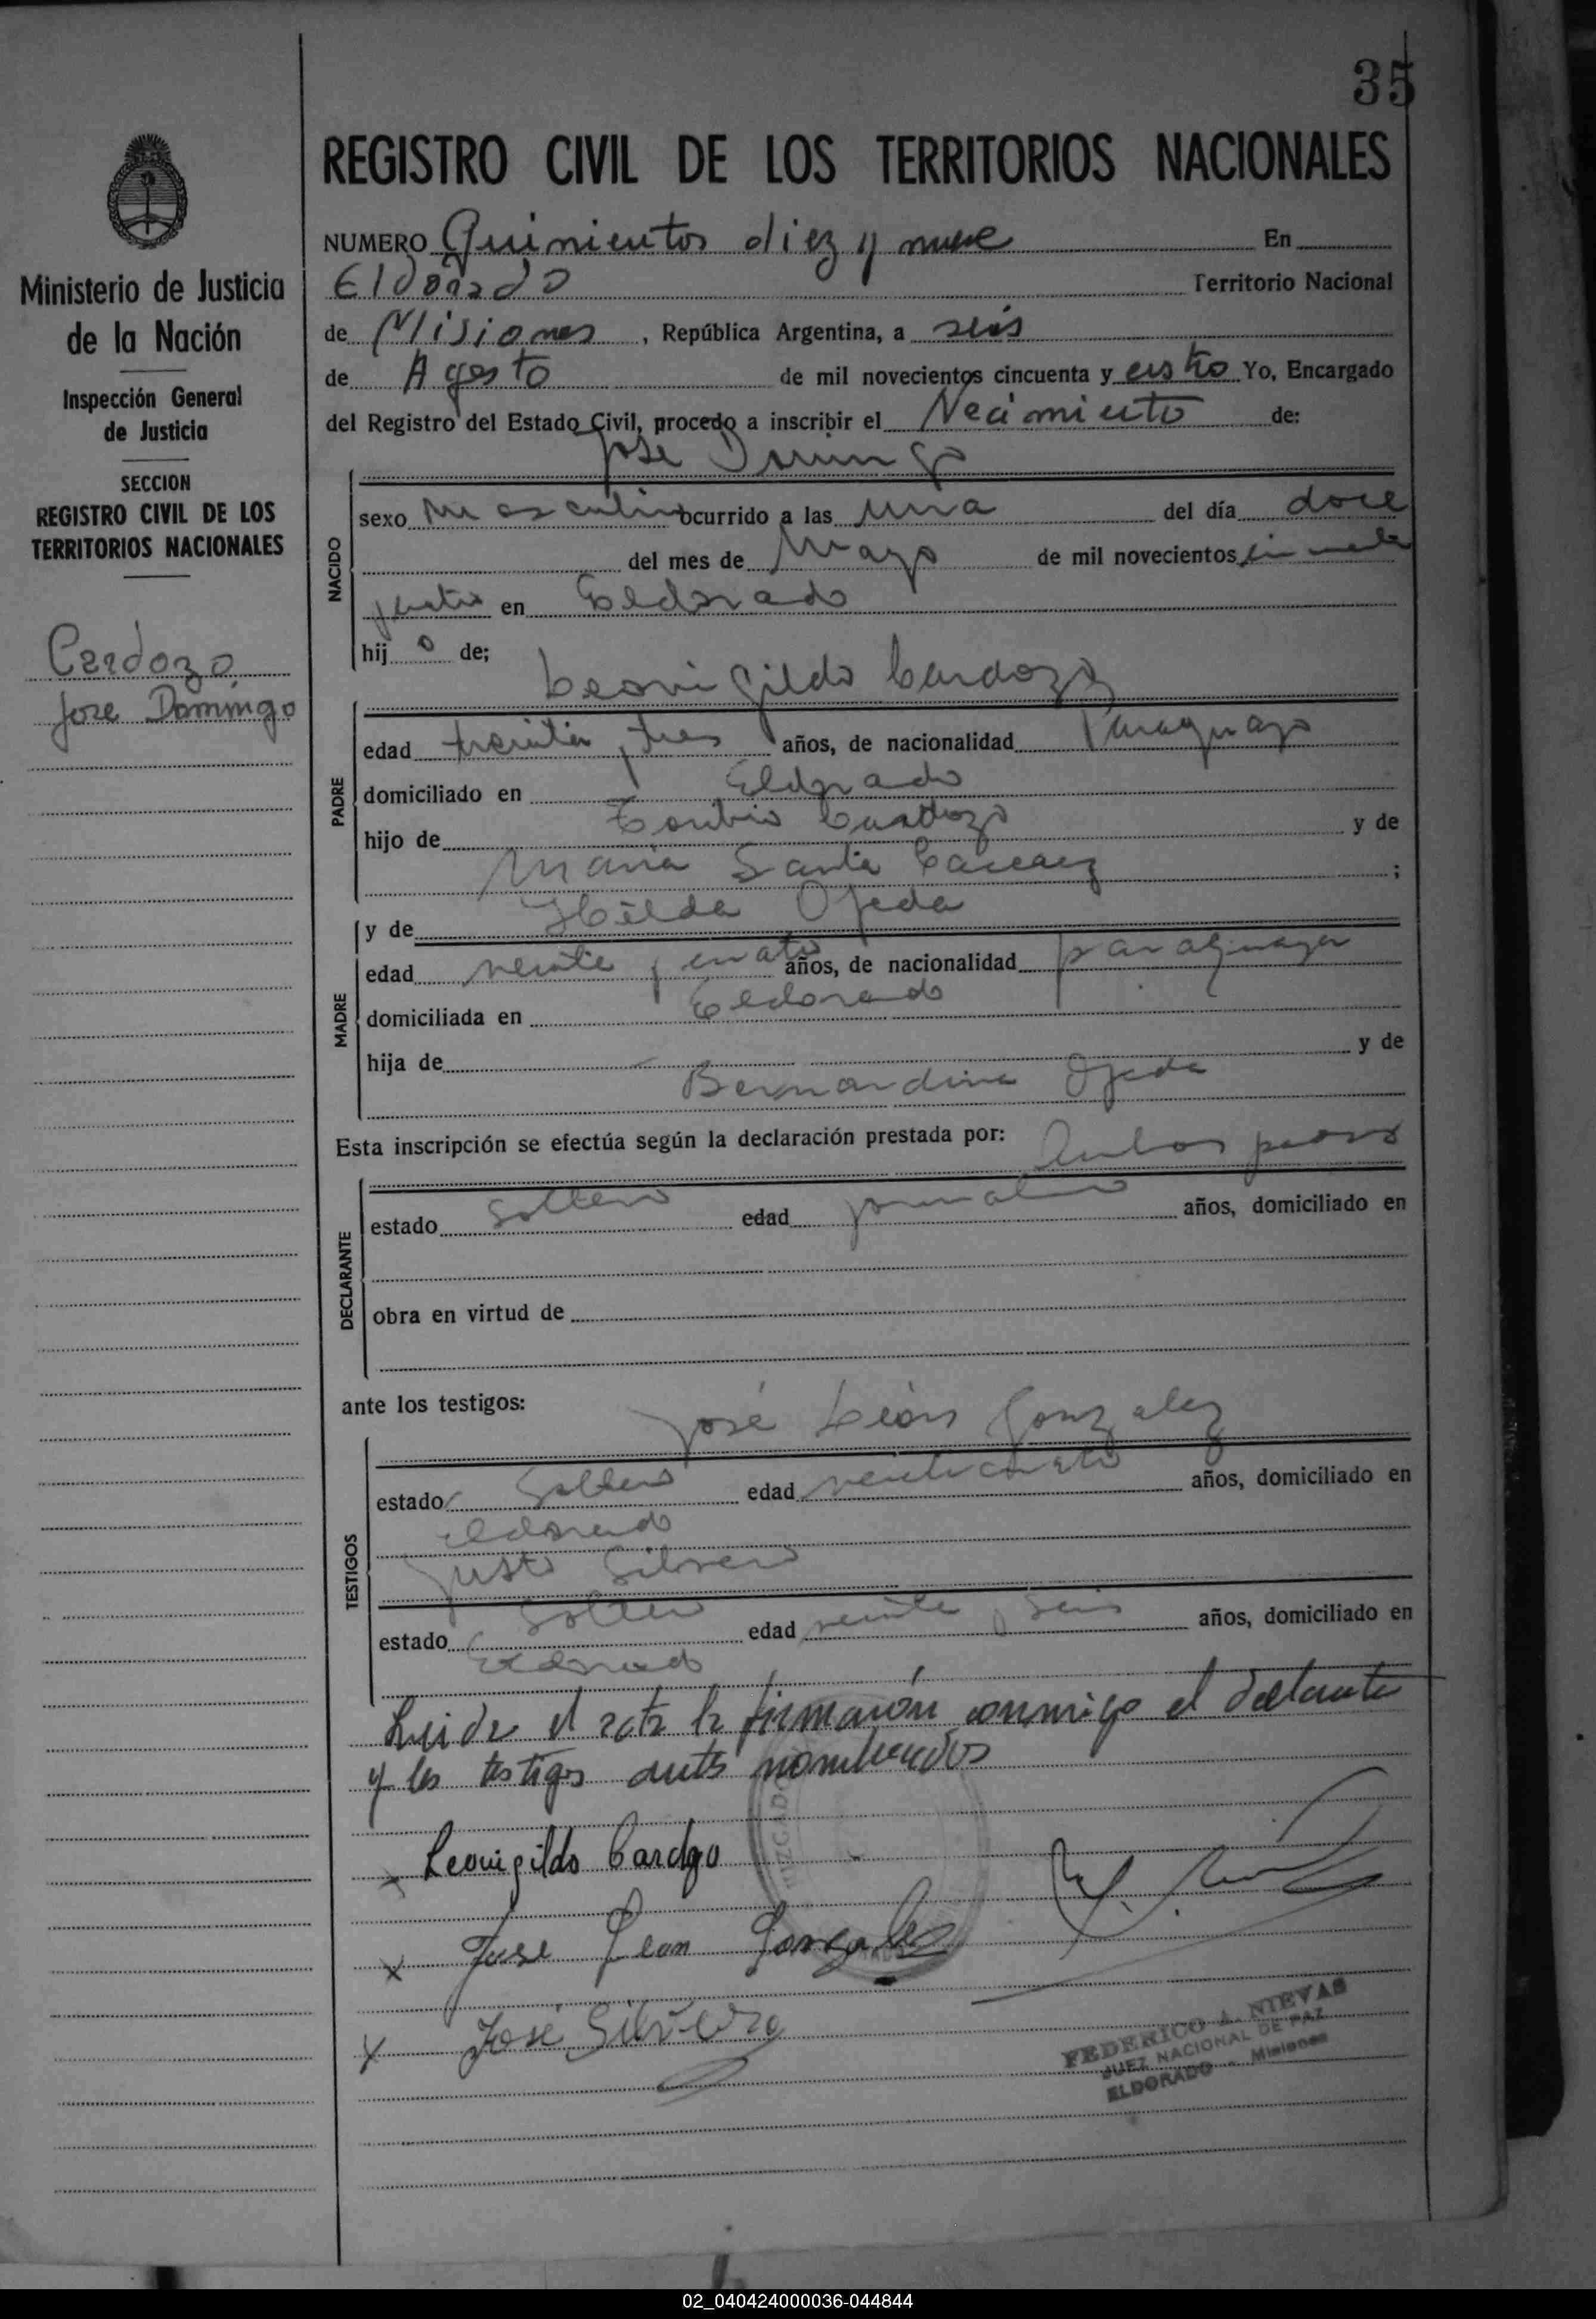 35
REGISTRO CIVIL DE LOS TERRITORIOS NACIONALES
Ministerio de Justicia
de la Nación
Inspección General
de Justicia
SECCION
REGISTRO CIVIL DE LOS
TERRITORIOS NACIONALES
Cardozo
Jose Domingo
NUMERO Quinientos diez y nueve En
Eldorado Territorio Nacional
de Misiones, República Argentina, a seis
de Agosto de mil novecientos cincuenta y Yo, Encargado
del Registro del Estado Civil, procedo a inscribir el Nacimiento de:
Jose Domingo
NACIDO
sexo masculino ocurrido a las una del día doce
del mes de Mayo de mil novecientos
en Eldorado
hijo de;
Leovigildo Cardozo
PADRE
edad treinta y tres años, de nacionalidad Paraguayo
domiciliado en Eldorado
hijo de Toribio Cardozo y de
Maria Santa ;
y de Hilda Ojeda
MADRE
edad veinte y cuatro años, de nacionalidad paraguaya
domiciliada en Eldorado
hija de y de
Bernardina Ojeda
Esta inscripción se efectúa según la declaración prestada por: Ambos
DECLARANTE
estado soltero edad jornalero años, domiciliado en
obra en virtud de
ante los testigos:
José León Gonzalez
TESTIGOS
estado Soltero edad veinticuatro años, domiciliado en
Eldorado
Justo
estado Soltero edad veinte y seis años, domiciliado en
Eldorado
Leida el acta la firmarón conmigo el declarante
y los testigos antes nombrados
x Leovigildo Cardozo
x Jose Leon Gonzalez
x José Silvero
FEDERICO A. NIEVAS
JUEZ NACIONAL DE PAZ
ELDORADO - Misiones
02_040424000036-044844